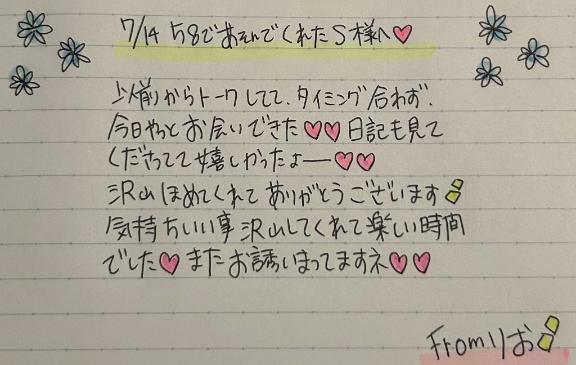 7/14 58であそんでくれたS様へ♡
以前からトークしてて、タイミング合わず、
今日やっとお会いできた♡♡日記も見て
くださってて嬉しかったよー♡♡
沢山ほめてくれてありがとうございます
気持ちいい事沢山してくれて楽しい時間
でした♡またお誘いまってますネ♡♡
Fromりお